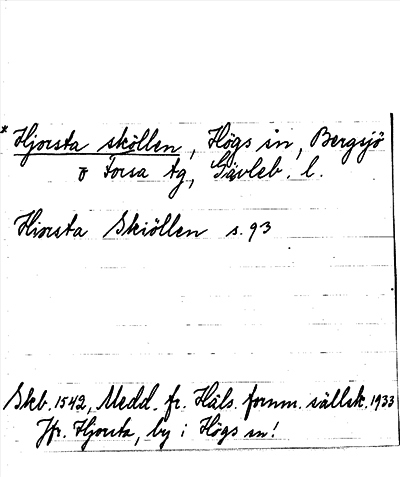 * Hjorsta sköllen, Högs sn, Bergsjö
o Forsa tg, Gävleb. l.
Hiorsta Skiöllen s. 93
Skb. 1542, Medd. fr. Häls. fornm. sällsk. 1933
Jfr. Hjorsta, by i Högs sn!